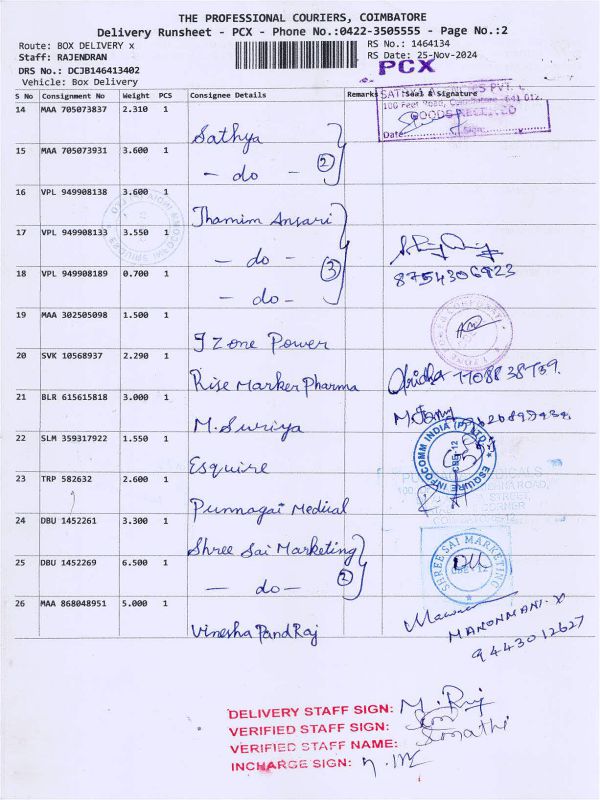 THE PROFESSIONAL COURIERS, COIMBATORE
Delivery Runsheet - PCX - Phone No.:0422-3505555 - Page No.:2
Route: BOX DELIVERY x
RS No.: 1464134
Staff: RAJENDRAN
RS Date: 25-Nov-2024
DRS No.: DCJB146413402
PCX
Vehicle: Box Delivery
S No Consignment No Weight PCS Consignee Details Remarks Seal & Signature
100 Feet Road, Coimbatore - 641 012.
GOODS RECEIVED
Date: Sign:
14 MAA 705073837 2.310 1 Sathya
15 MAA 705073931 3.600 1 - do - 2
16 VPL 949908138 3.600 1 Thamim Ansari
17 VPL 949908133 3.550 1 - do -
18 VPL 949908189 0.700 1 - do - 3
8754306923
19 MAA 302505098 1.500 1 I Zone Power
20 SVK 10568937 2.290 1 Rise Marker Pharma
21 BLR 615615818 3.000 1 M. Suriya
22 SLM 359317922 1.550 1 Esquire
ESQUIRE INFOCOMM INDIA (P) LTD
CBE-12
23 TRP 582632 2.600 1 Punnagai Medical
24 DBU 1452261 3.300 1 Shree Sai Marketing
25 DBU 1452269 6.500 1 - do - 2
SHREE SAI MARKETING
CBE-12
26 MAA 868048951 5.000 1 Vinesha PandRaj
MANONMANI.
9443012627
DELIVERY STAFF SIGN:
VERIFIED STAFF SIGN:
VERIFIED STAFF NAME: Sonathi
INCHARGE SIGN: